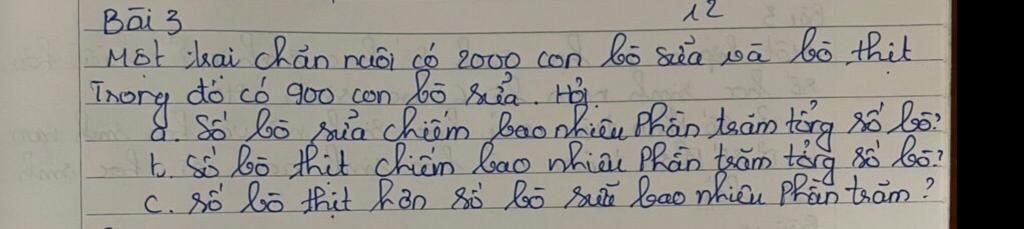 12
Bài 3
Một trại chăn nuôi có 2000 con bò sữa và bò thịt
Trong đó có 900 con bò sữa. Hỏi
a. Số bò sữa chiếm bao nhiêu phần trăm tổng số bò?
b. Số bò thịt chiếm bao nhiêu phần trăm tổng số bò?
c. số bò thịt hơn số bò sữa bao nhiêu phần trăm?